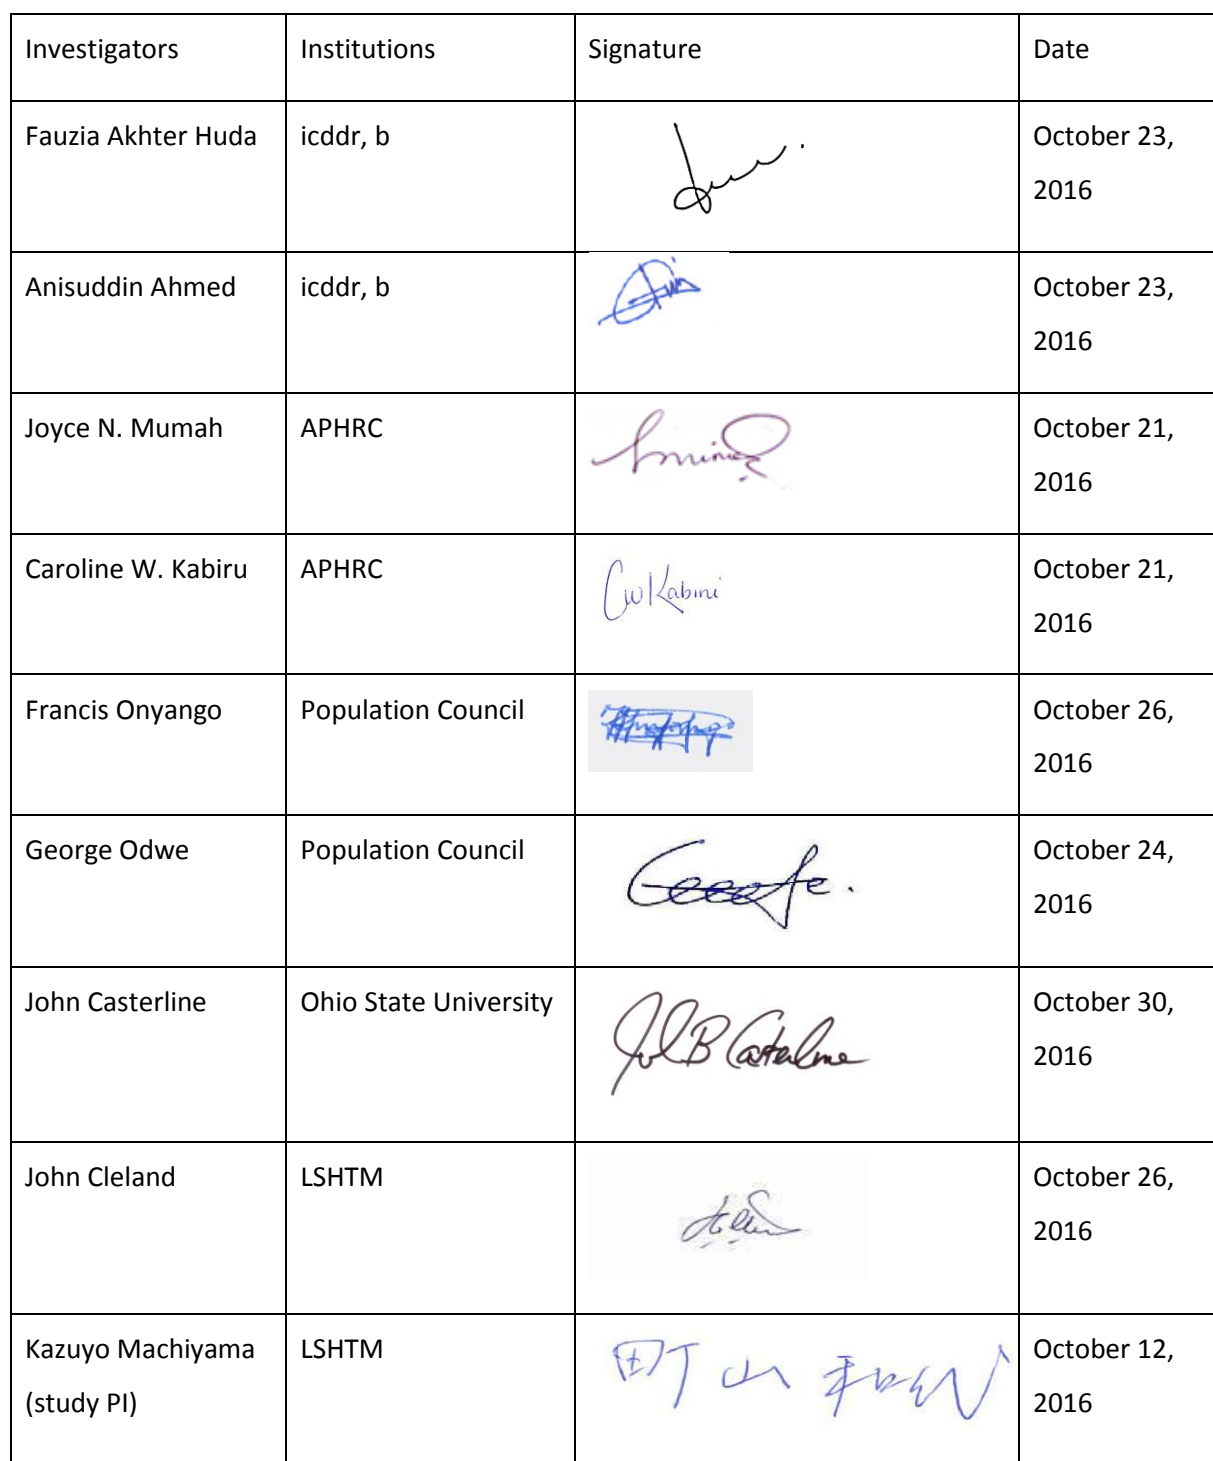 Investigators Institutions Signature Date
Fauzia Akhter Huda icddr, b October 23,
2016
Anisuddin Ahmed icddr, b October 23,
2016
Joyce N. Mumah APHRC October 21,
2016
Caroline W. Kabiru APHRC CWKabiru October 21,
2016
Francis Onyango Population Council October 26,
2016
George Odwe Population Council October 24,
2016
John Casterline Ohio State University John B Casterline October 30,
2016
John Cleland LSHTM October 26,
2016
Kazuyo Machiyama LSHTM 町山 和代 October 12,
(study PI) 2016